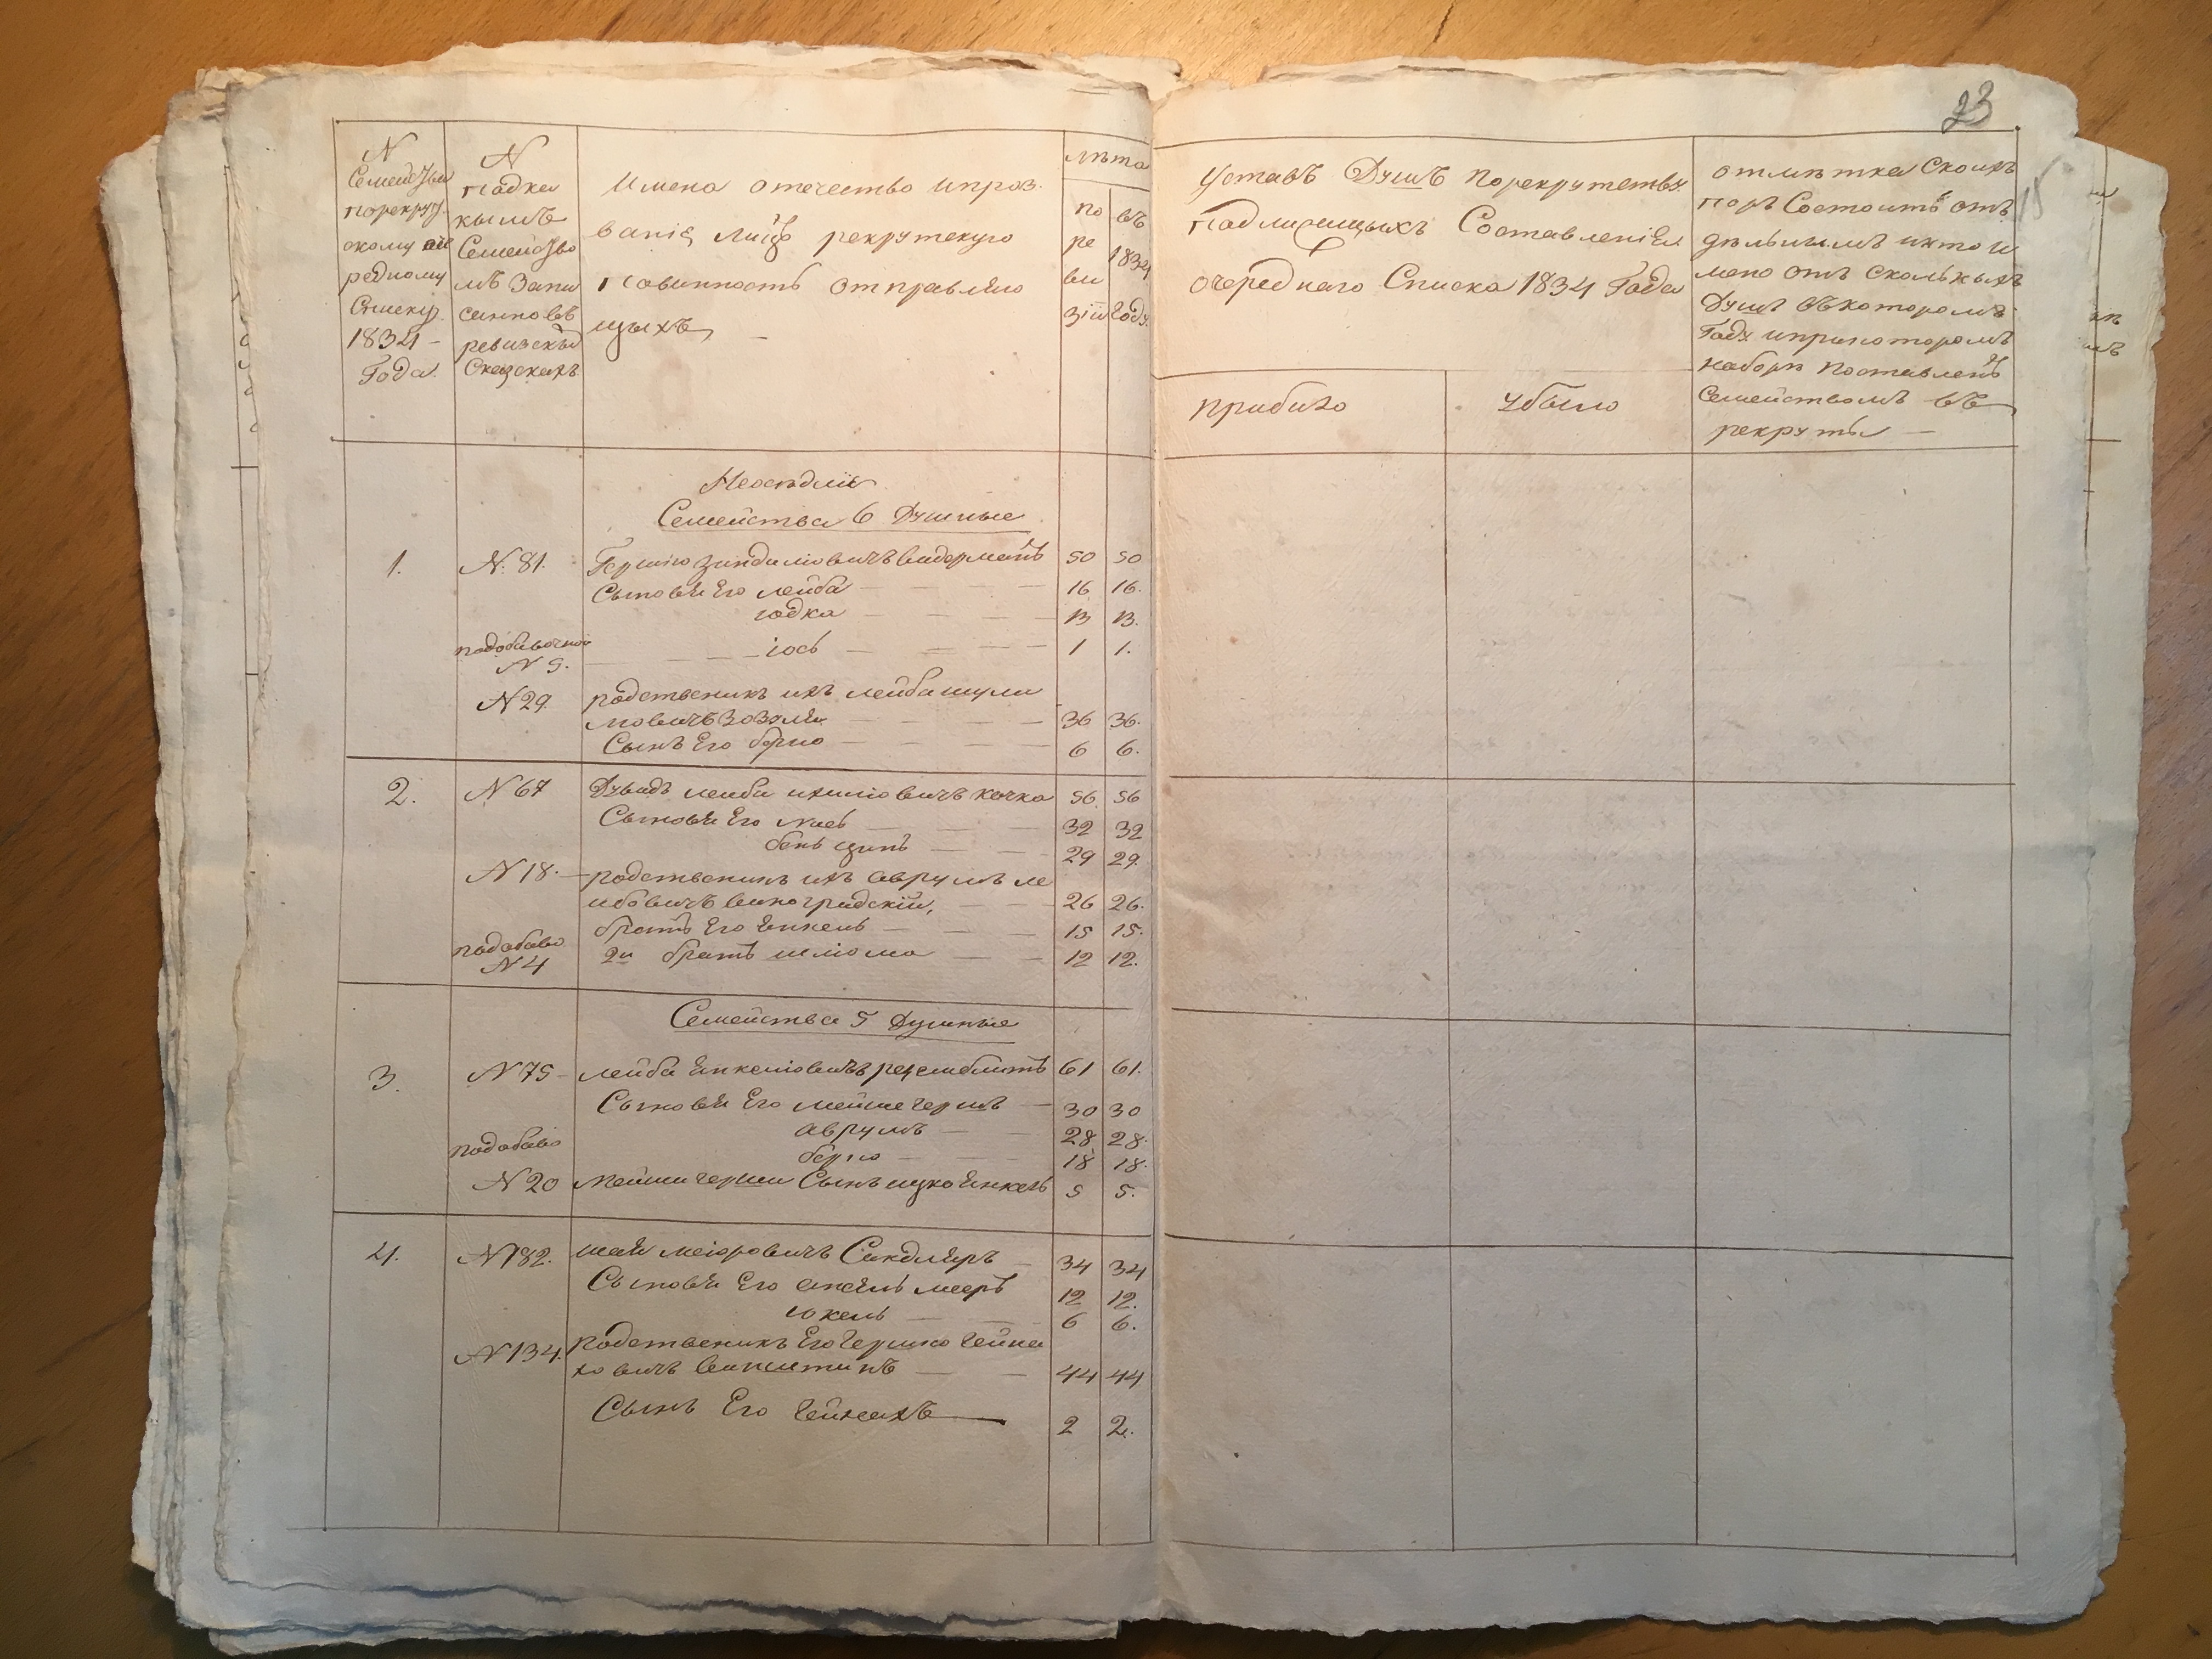 23
15
N
Семейства
порекрут
скому оче
редному
Списку
1834 -
Года.
N
Подка
кимъ
Семейство
мъ Запи
санновъ
ревизскихъ
Сказкахъ
Имена отечество ипроз
ванiе лицъ рекрутскую
повинность отправляю
щихъ, -
лѣта
по
ре
ви
зiи
въ
1834
Году.
Уставъ Душъ порекрутству
подлежащихъ Составленiем
очереднаго Списка 1834 Года
прибило
убыло
отмѣтка Скоихъ
поръ Состоитъ отъ
дѣльнымъ икто и
мено отъ сколькихъ
Душъ въкоторомъ
Году ипрыкоторомъ
наборѣ поставленъ
Семействомъ въ
рекруты —
Неосѣдлiе
Семейства 6 Душные
1. N. 81. Гершко Зинделiовичъ видерманъ 50 50
Сыновья Его лейба — 16 16.
юдка — 13 13.
подобавочной
N 5. — iось — 1 1.
N 29 родственикъ ихъ лейба шули
мовичъ зозуля — 36 36.
Сынъ Его берко — 6 6.
2. N 67 Дувидъ лейби ихилiовичъ кочка 56. 56
Сыновья Его — 32 32
бень ционъ — 29 29.
N 18. — родственикъ ихъ аврумъ ле
ибовичъ виноградскiй, — 26 26.
братъ Его Янкель — 15 15.
подобаво
N 4 2й братъ шлiома — 12 12.
Семейства 5 Душные
3. N 75 - лейба Янкелiовичъ 61 61.
Сыновья Его мошке гершъ — 30 30
аврумъ — 28 28.
подобаво берко — 18 18.
N 20 мошки герши Сынъ ицко Янкель 5 5.
4. N 182. шая меiоровичъ Сандлеръ — 34 34
Сыновья Его мееръ 12 12.
iокель — 6 6.
N 134. Родственикъ Его Гершко Гейна
ховичъ — 44 44
Сынъ Его Гейнахъ — 2 2.